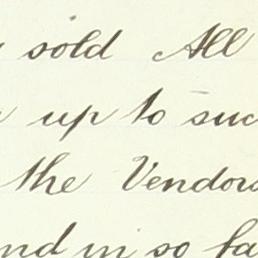 sold All
up to suc
the Vendors
nd in so fa